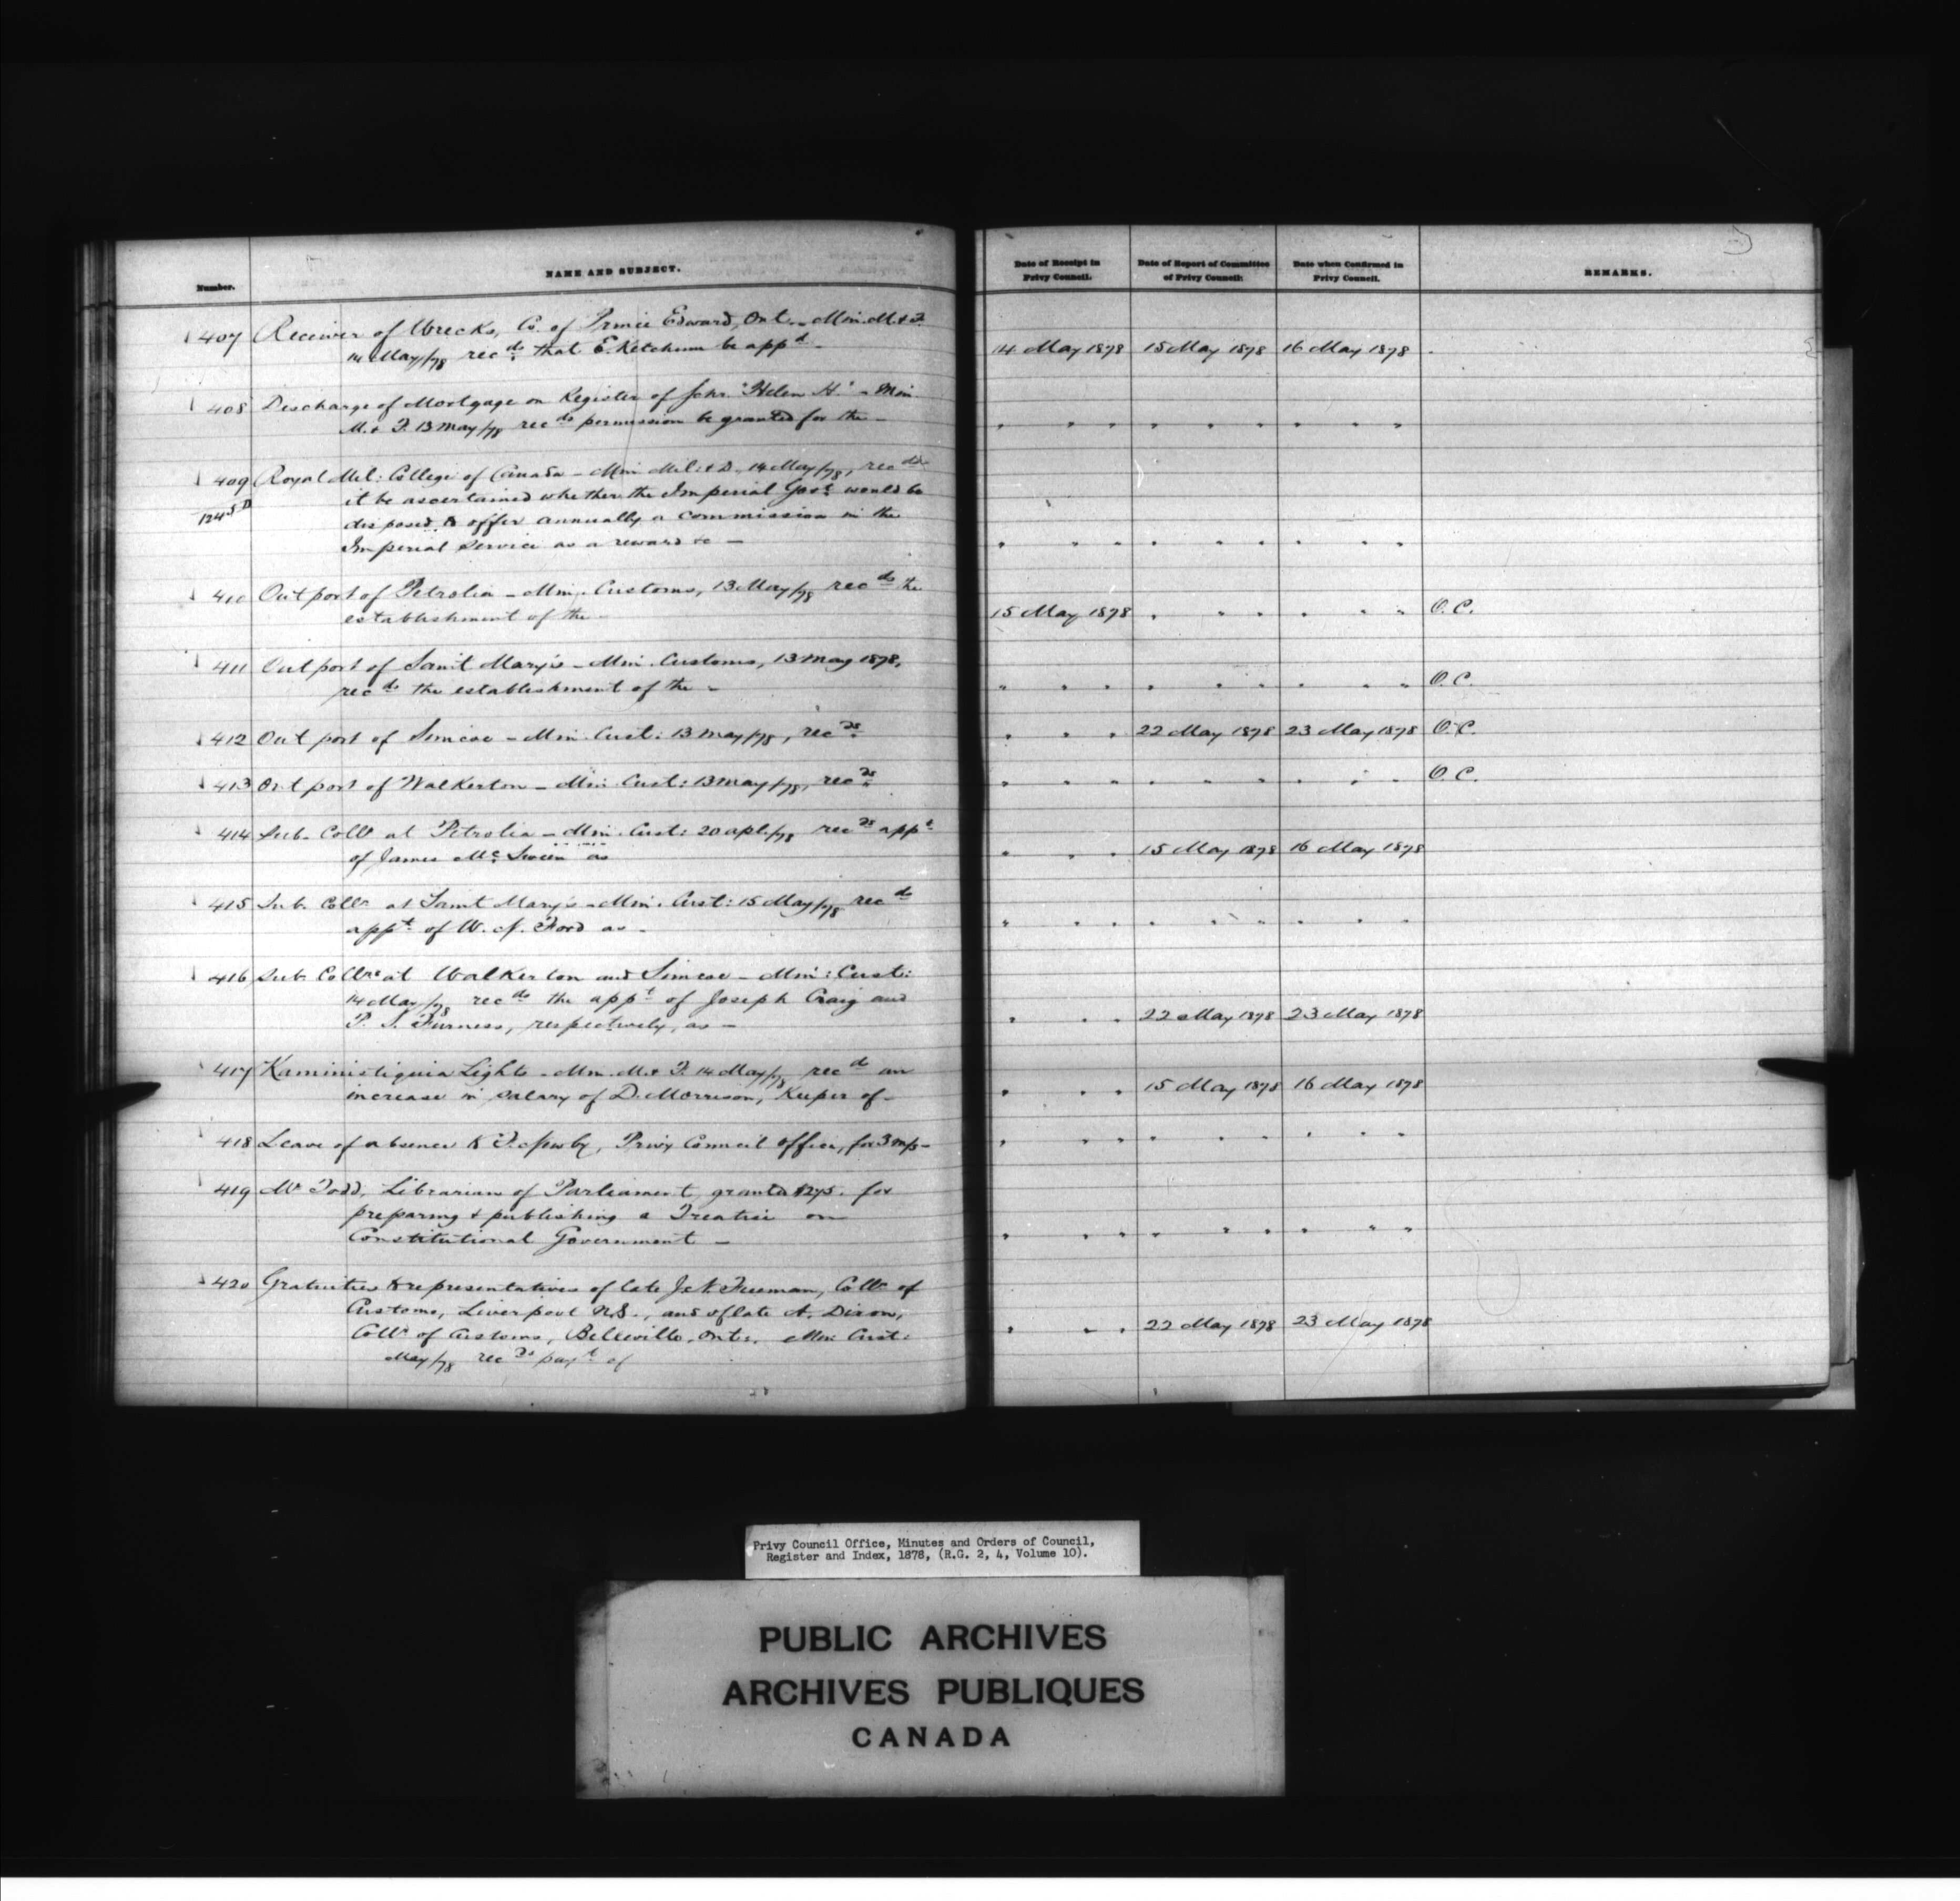 Number.
NAME AND SUBJECT.
Date of Receipt in Privy Council.
Date of Report of Committee of Privy Council.
Date when Confirmed in Privy Council.
REMARKS.
407 Receiver of Wrecks, Co. of Prince Edward, Ont. - Min. M. & F.
14 May/78 recds that E. Ketchum be appd - 14 May 1878 15 May 1878 16 May 1878
408 Discharge of Mortgage on Register of Schr. "Helen H." - Min
M. & F. 13 May/78 recds permission be granted for the - " " " " " " " " "
409 Royal Mil: College of Canada - Min Mil: & D. 14 May/78, recds
124 S D it be ascertained whether the Imperial Govt would be
disposed to offer annually a commission in the
Imperial Service as a reward &c - " " " " " " " " "
410 Out port of Petrolia - Min. Customs, 13 May/78 recds the
establishment of the - 15 May 1878 " " " " " " O. C.
411 Out port of Saint Mary's - Min. Customs, 13 May 1878,
recds the establishment of the - " " " " " " " " " O. C.
412 Out port of Simcoe - Min. Cust: 13 May/78, recds " " " 22 May 1878 23 May 1878 O. C.
413 Out port of Walkerton - Min. Cust: 13 May/78, recds " " " " " " " " " O. C.
414 Sub. Collr at Petrolia - Min. Cust: 20 Apl./78 recds appt
of James as " " " 15 May 1878 16 May 1878
415 Sub. Collr at Saint Mary's - Min. Cust: 15 May/78 recds
appt of W. N. Ford as - " " " " " " " " "
416 Sub. Collrs at Walkerton and Simcoe - Min: Cust:
14 May/78 recds the appt of Joseph Craig and
P. S. Furness, respectively, as - " " " 22 May 1878 23 May 1878
417 Kaministiquia Lights - Min. M. & F. 14 May/78 recds an
increase in salary of D. Morrison, Keeper of - " " " 15 May 1878 16 May 1878
418 Leave of absence to F. Newby, Privy Council Office, for 3 mos - " " " " " " " " "
419 Mr Todd, Librarian of Parliament, granted $275. for
preparing & publishing a Treatise on
Constitutional Government - " " " " " " " " "
420 Gratuities to representatives of late J. N. Freeman, Collr of
Customs, Liverpool N.S., and of late A. Dixon,
Collr of Customs, Belleville, Ont. Min: Cust: " " " 22 May 1878 23 May 1878
May/78 recds payt of
Privy Council Office, Minutes and Orders of Council,
Register and Index, 1878, (R.G. 2, 4, Volume 10).
PUBLIC ARCHIVES
ARCHIVES PUBLIQUES
CANADA